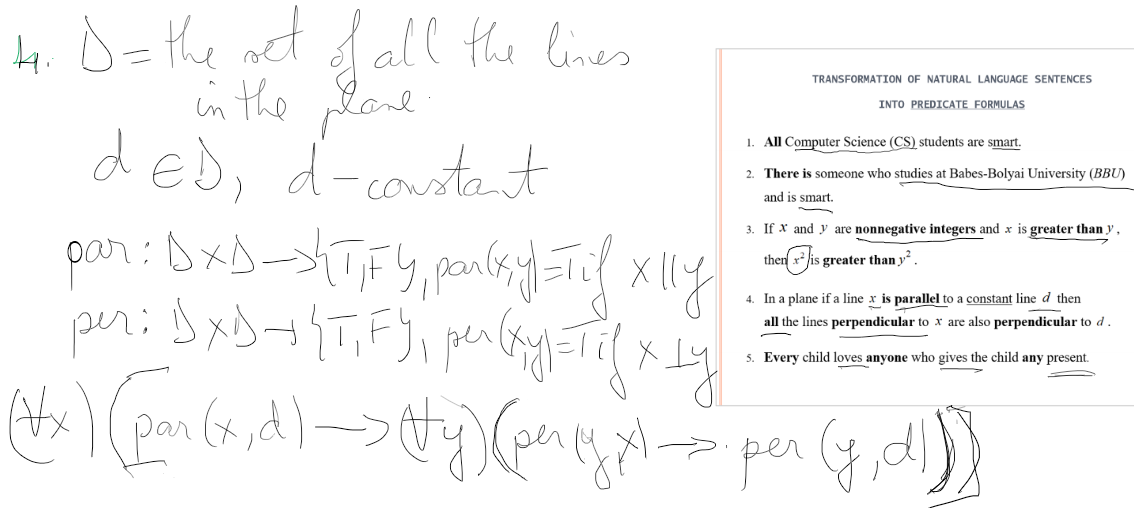 4. D = the set of all the lines
in the plane.
d ∈ D, d - constant
par: D×D → {T,F}, par(x,y)=T if x || y
per: D×D → {T,F}, per(x,y)=T if x ⊥ y
(∀x)[par(x,d) → (∀y)(per(y,x) → per(y,d))]
TRANSFORMATION OF NATURAL LANGUAGE SENTENCES
INTO PREDICATE FORMULAS
1. All Computer Science (CS) students are smart.
2. There is someone who studies at Babes-Bolyai University (BBU)
and is smart.
3. If x and y are nonnegative integers and x is greater than y ,
then x² is greater than y² .
4. In a plane if a line x is parallel to a constant line d then
all the lines perpendicular to x are also perpendicular to d .
5. Every child loves anyone who gives the child any present.